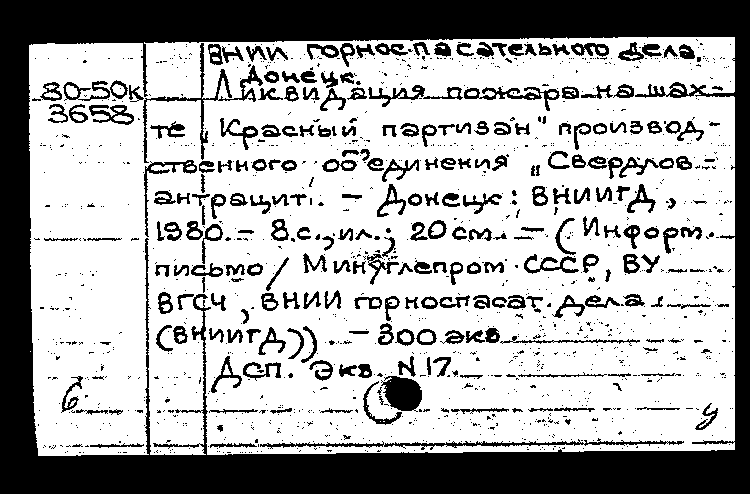 ВНИИ горноспасательного дела.
Донецк.
80-50к
3658
Ликвидация пожара на шах-
те „Красный партизан" производ-
ственного объединения „Свердлов-
антрацит". – Донецк: ВНИИГД,
1980. – 8 с., ил.; 20 см. – (Информ.
письмо / Минуглепром СССР, ВУ
ВГСЧ, ВНИИ горноспасат. дела
(ВНИИГД)). – 300 экз.
ДСП. Экз. N 17.
б
у